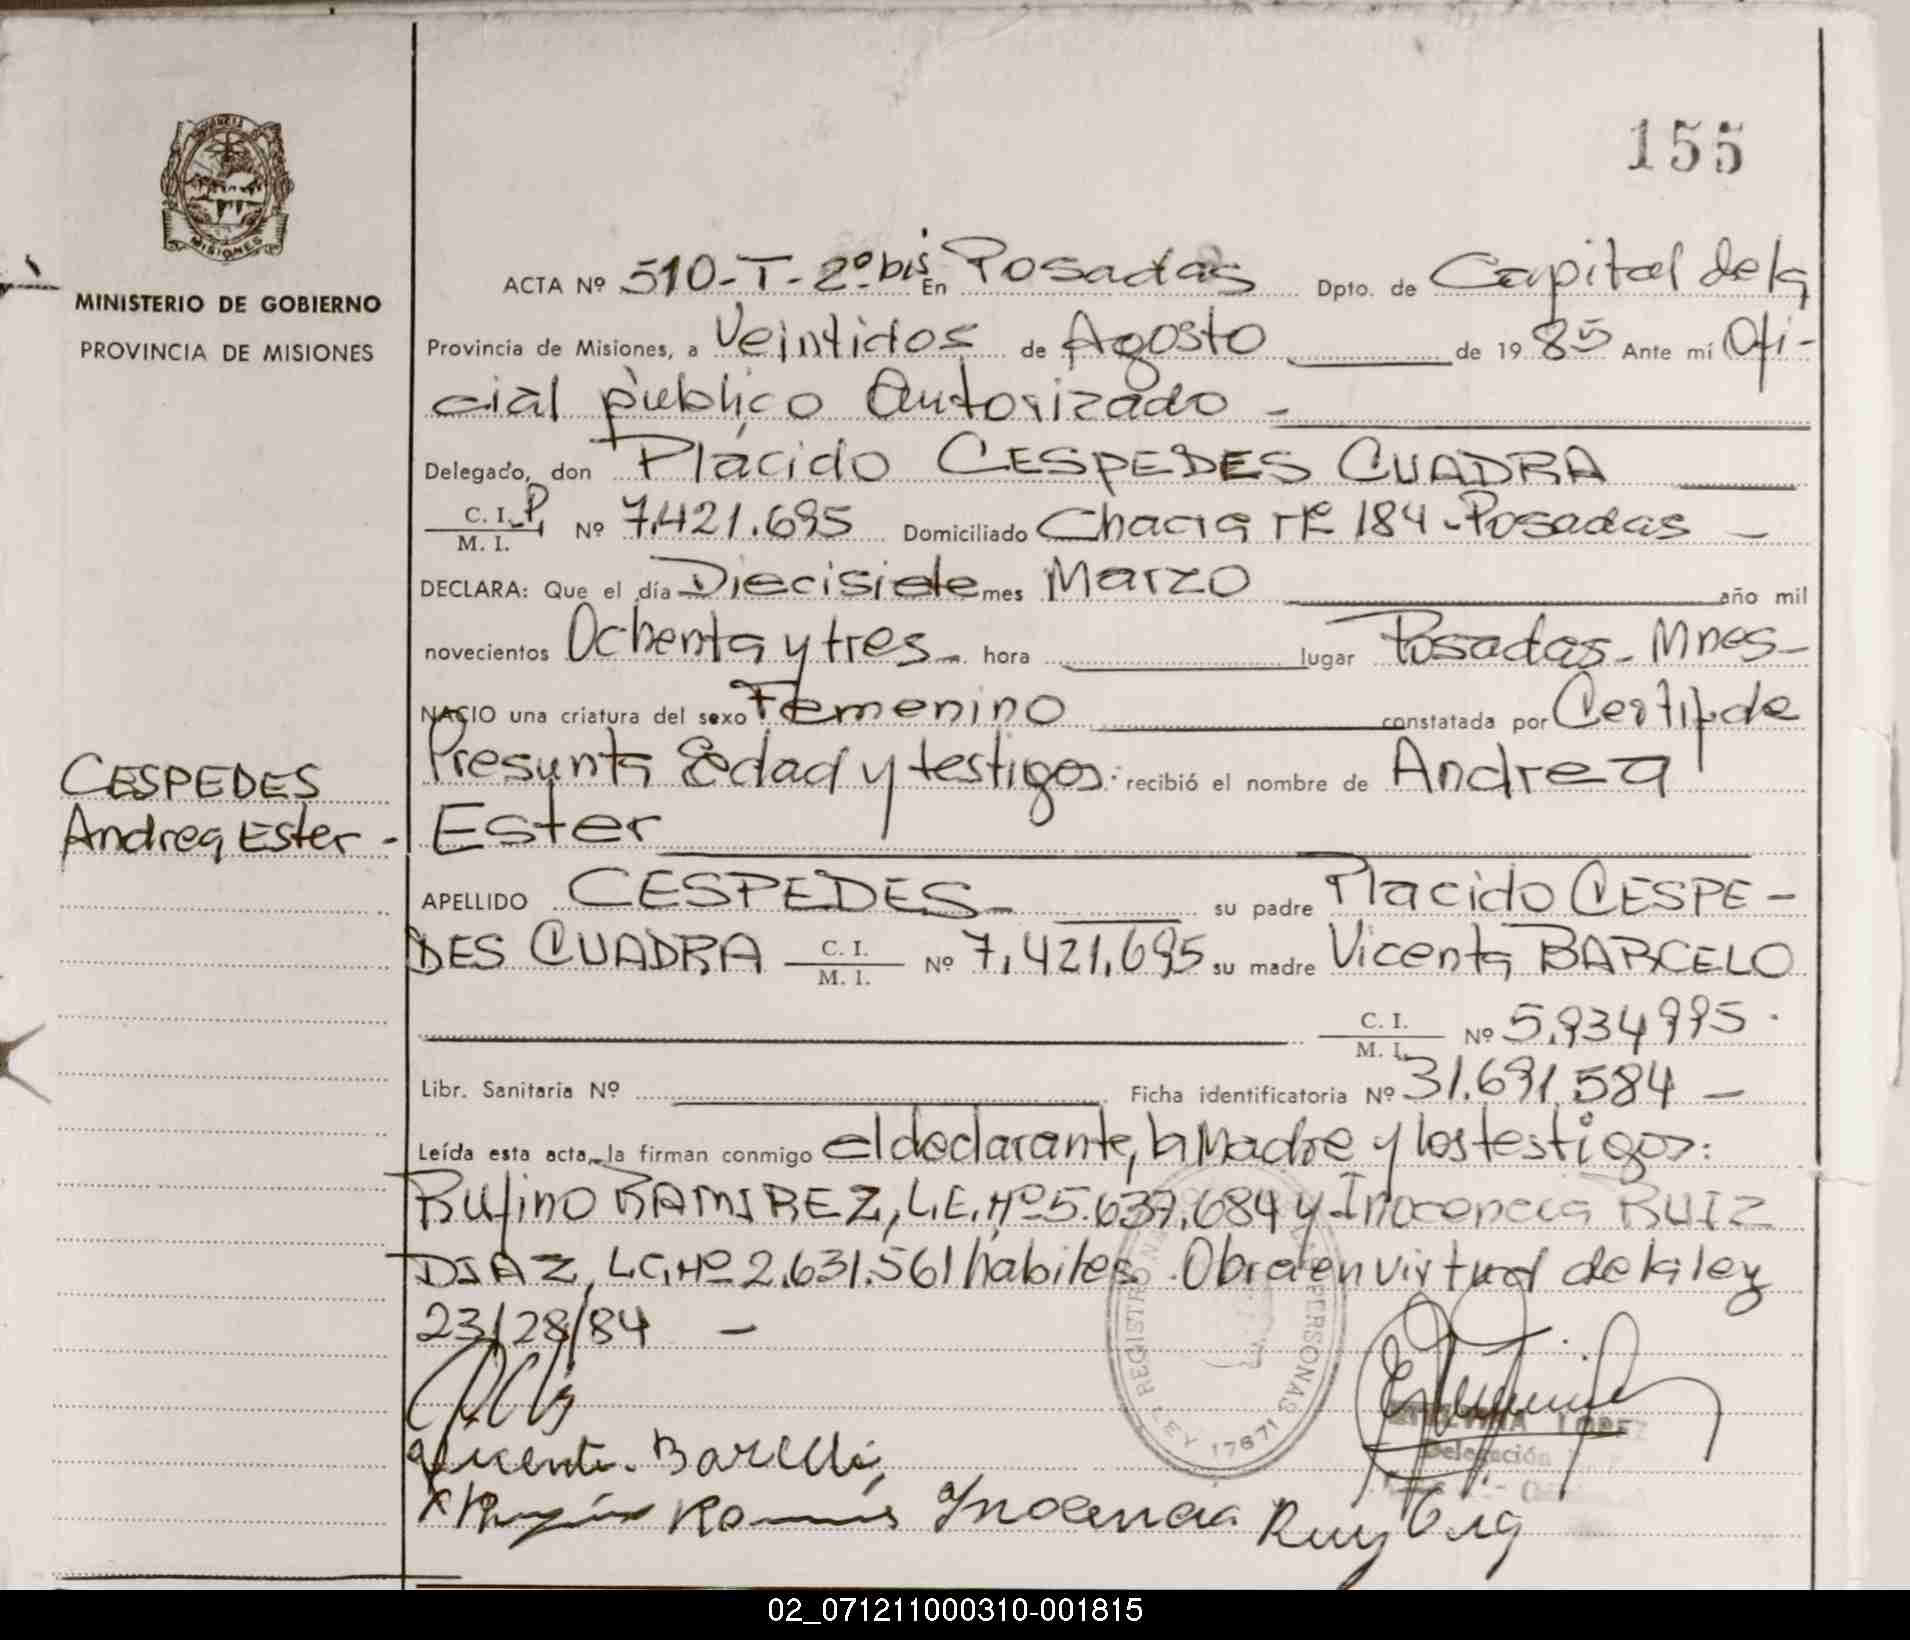 155
MISIONES
MINISTERIO DE GOBIERNO
PROVINCIA DE MISIONES
CESPEDES
Andrea Ester -
ACTA Nº 510-T-2º bis En Posadas Dpto. de Capital de la
Provincia de Misiones, a Veintidos de Agosto de 1985 Ante mí Ofi-
cial público Autorizado -
Delegado, don Plácido CESPEDES CUADRA
C. I. P,
M. I. Nº 7.421.695 Domiciliado Chacra Nº 184 - Posadas -
DECLARA: Que el día Diecisiete mes Marzo año mil
novecientos Ochenta y tres - hora lugar Posadas - Mnes -
NACIO una criatura del sexo Femenino constatada por Certif. de
Presunta Edad y testigos: recibió el nombre de Andrea
Ester
APELLIDO CESPEDES - su padre Placido CESPE-
DES CUADRA C. I. M. I. Nº 7.421.695 su madre Vicenta BARCELO
C. I. M. I. Nº 5.934995.
Libr. Sanitaria Nº Ficha identificatoria Nº 31.691.584 -
Leída esta acta, la firman conmigo el declarante, la Madre y los testigos:
Rufino RAMIREZ, L.E. Nº 5.637.684 y Inocencia RUIZ
DIAZ, L.C. Nº 2.631.561 habiles. Obra en virtud de la ley
23/28/84 -
REGISTRO PERSONAS
LEY 17671
LOPEZ
Delegación
Inocencia Ruiz
02_071211000310-001815